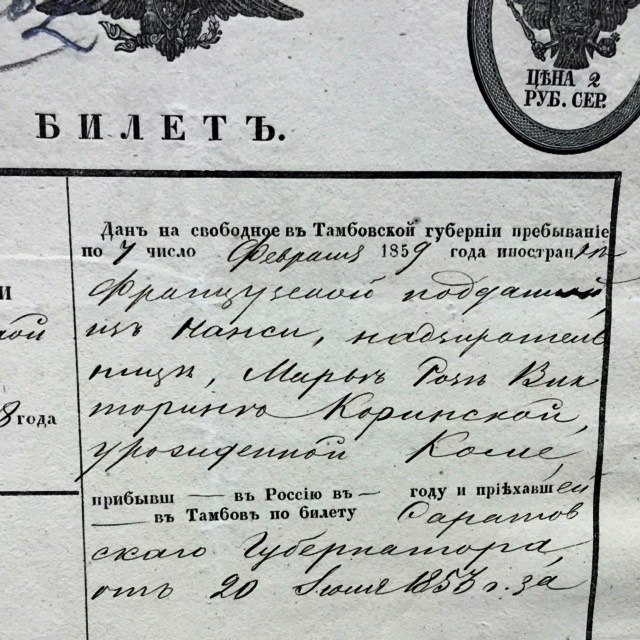 ЦѢНА 2
РУБ. СЕР.
БИЛЕТЪ.
Данъ на свободное въ Тамбовской губерніи пребываніе
по 7 число Февраля 1859 года иностран
Французской подданной
изъ Нанси, надзиратель
ницѣ, Марьѣ Розѣ Вик
торинѣ Коринской,
урожденной Коле,
прибывш — въ Россію въ — году и пріѣхавшей
— въ Тамбовъ по билету Саратов
скаго Губернатора,
отъ 20 Іюля 1853 г. за
8 года